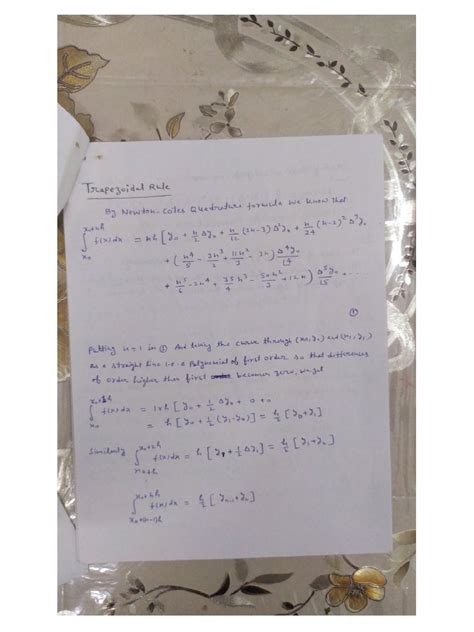 Trapezoidal Rule
By Newton Cotes Quadrature formula we know that
∫_{x₀}^{x₀+nh} f(x)dx = nh [y₀ + n/2 Δy₀ + n/12 (2n-3) Δ²y₀ + n/24 (n-2)² Δ³y₀
+ (n⁴/5 - 3n³/2 + 11n²/3 - 3n) Δ⁴y₀/⌊4
+ (n⁵/6 - 2n⁴ + 35n³/4 - 50n²/3 + 12n) Δ⁵y₀/⌊5 + ...
①
Putting n=1 in ① and taking the curve through (x₀,y₀) and (x₁,y₁)
as a straight line i.e. a Polynomial of first order so that differences
of order higher than first becomes zero, we get
∫_{x₀}^{x₀+h} f(x)dx = 1×h [y₀ + 1/2 Δy₀ + 0 +0
= h [y₀ + 1/2 (y₁-y₀)] = h/2 [y₀+y₁]
Similarly ∫_{x₀+h}^{x₀+2h} f(x)dx = h [y₁ + 1/2 Δy₁] = h/2 [y₁+y₂]
∫_{x₀+(n-1)h}^{x₀+nh} f(x)dx = h/2 [yₙ₋₁+yₙ]